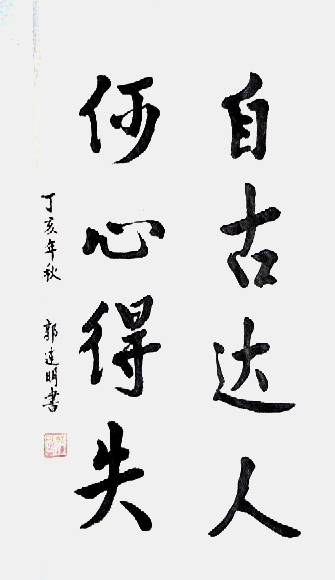 自古达人
何心得失
丁亥年秋 郭连明书